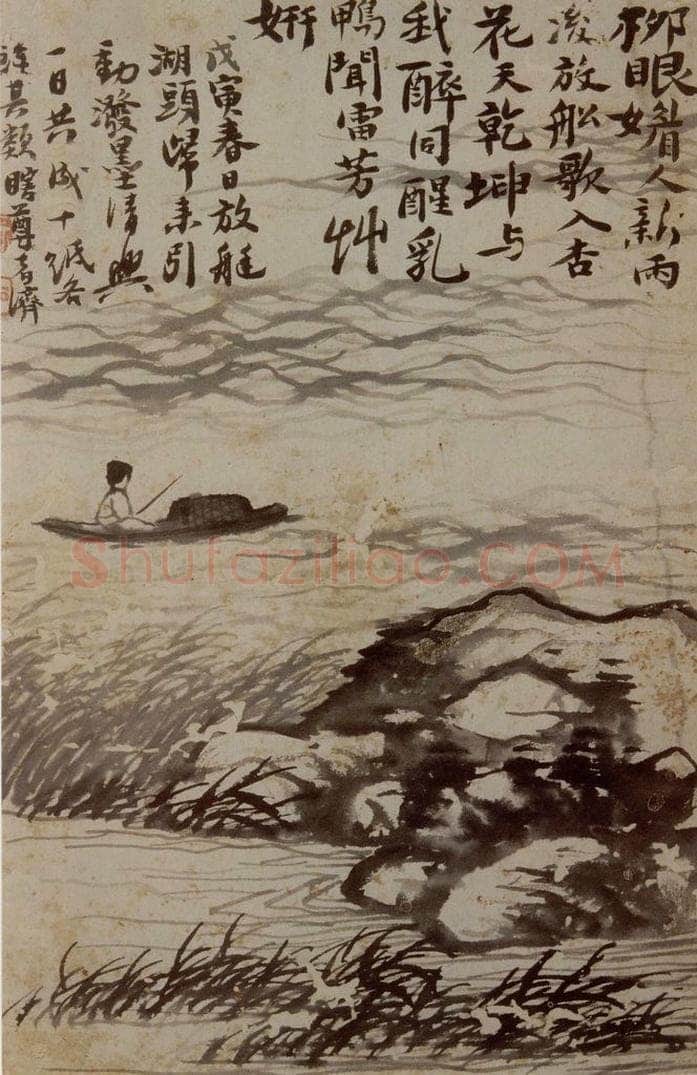 柳眼着人新雨
後放船歌入杏
花天乾坤与
我醉同醒乳
鴨聞雷芳艸
妍
戊寅春日放艇
湖頭歸来引
動潑墨清興
一日共成十紙各
其類瞎尊者濟
Shufaziliao.COM